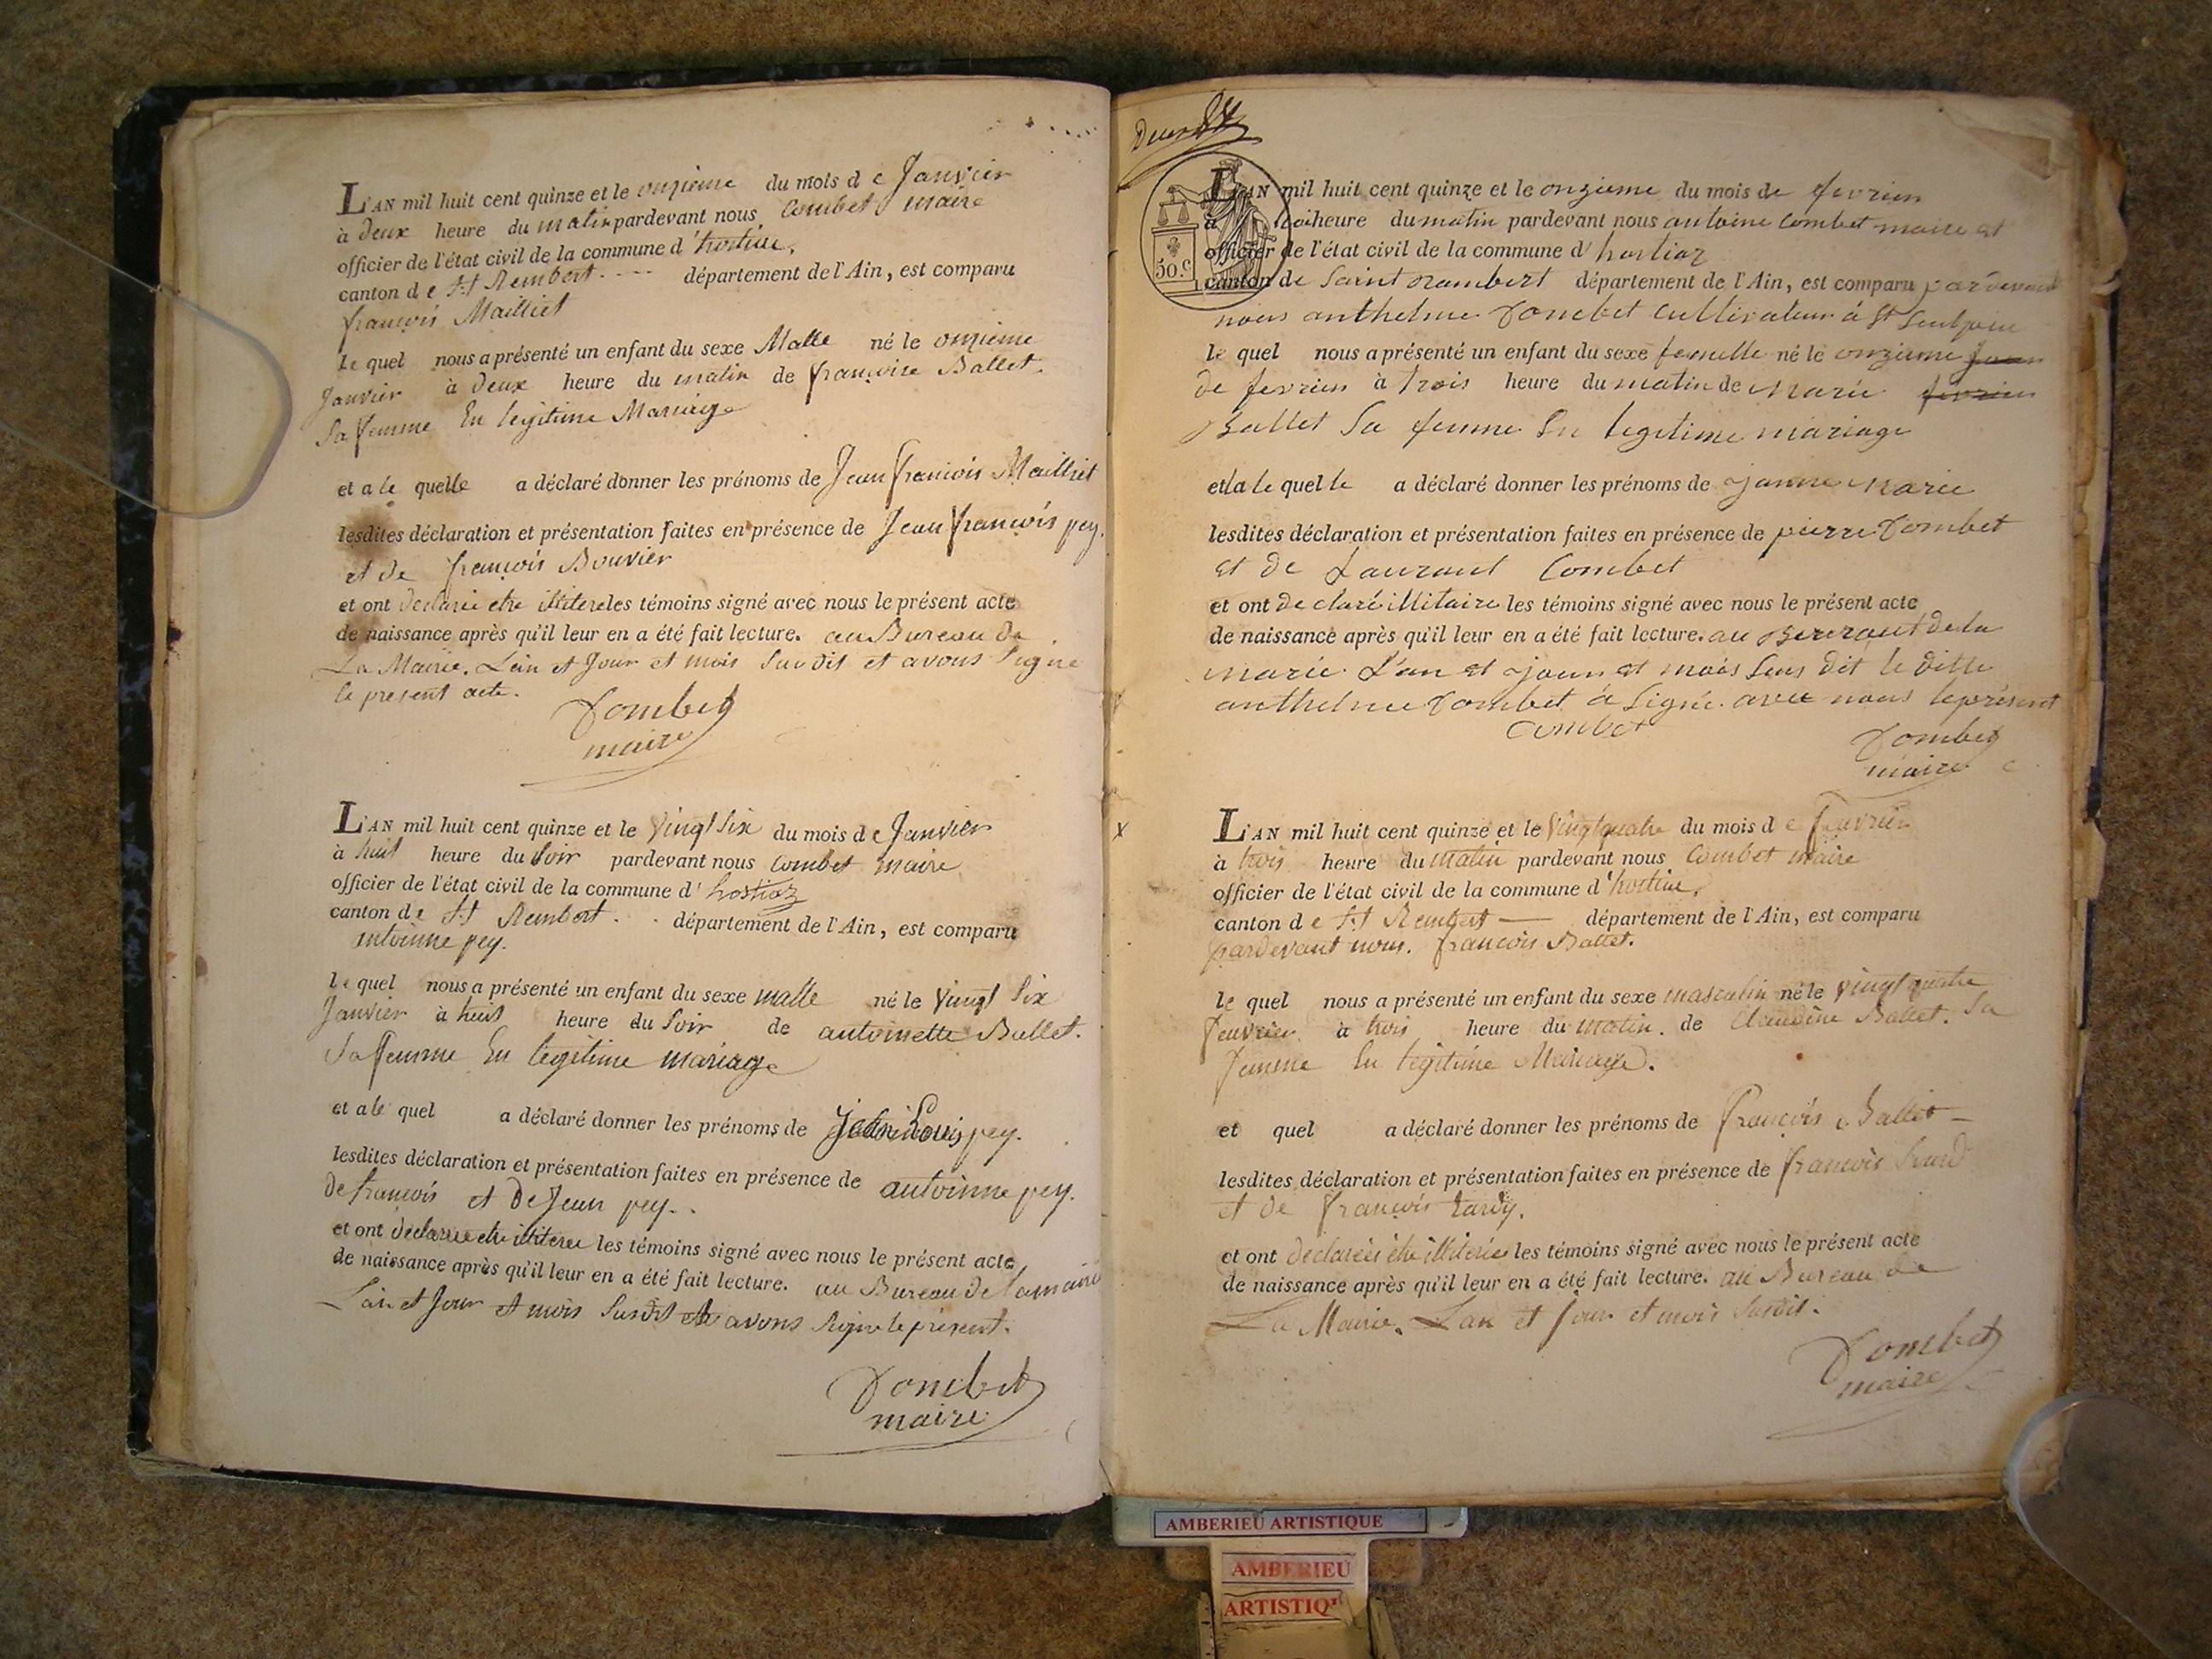 L'AN mil huit cent quinze et le onzieme du mois de Janvier
à deux heure du matin pardevant nous Combet maire
officier de l'état civil de la commune d'hostiaz
canton de St Rembert département de l'Ain, est comparu
françois Mailliet
le quel nous a présenté un enfant du sexe Malle né le onzieme
Janvier à deux heure du matin de françoise Ballet.
Sa femme En legitime Mariage
et a le quelle a déclaré donner les prénoms de Jean françois Mailliet
lesdites déclaration et présentation faites en présence de Jean françois pey.
et de françois Bouvier
et ont declarie etre illitere les témoins signé avec nous le présent acte
de naissance après qu'il leur en a été fait lecture. au Bureau de
La Mairie. L'an et Jour et mois Susdit et avons Signe
le present acte.
Combet
maire
L'AN mil huit cent quinze et le vingt Six du mois de Janvier
à huit heure du soir pardevant nous Combet maire
officier de l'état civil de la commune d'hostiaz
canton de St Rembert département de l'Ain, est comparu
antoinne pey.
le quel nous a présenté un enfant du sexe malle né le vingt Six
Janvier à huit heure du Soir de antoinette Ballet.
Sa femme En legitime mariage
et a le quel a déclaré donner les prénoms de Louis pey.
lesdites déclaration et présentation faites en présence de antoinne pey.
de françois et De Jean pey.
et ont declaree etre illiteree les témoins signé avec nous le présent acte
de naissance après qu'il leur en a été fait lecture. au Bureau de la mairie
L'an et Jour et mois Susdit avons Signe le présent.
Combet
maire
50.c
L'AN mil huit cent quinze et le onzieme du mois de fevrier
à heure du matin pardevant nous antoine Combet maire et
officier de l'état civil de la commune d'hostiaz
canton de Saint rambert département de l'Ain, est comparu pardevant
nous anthelme Combet Cultivateur á St
le quel nous a présenté un enfant du sexe femelle né le onzieme
de fevrier à trois heure du matin de Marie fevrier
Ballet Sa femme En legitime mariage
et la le quelle a déclaré donner les prénoms de janne Marie
lesdites déclaration et présentation faites en présence de pierre Combet
et de Laurant Combet
et ont declaré illitaire les témoins signé avec nous le présent acte
de naissance après qu'il leur en a été fait lecture. au de la
marie L'an et jour et mois Sus dit le ditte
anthelme Combet á Signé avec nous le présent
Combet
Combet
maire
L'AN mil huit cent quinze et le vingt quatre du mois de feuvrier
à trois heure du matin pardevant nous Combet maire
officier de l'état civil de la commune d'hostiaz
canton de St Rembert département de l'Ain, est comparu
pardevant nous. françois Ballet.
le quel nous a présenté un enfant du sexe masculin né le vingt quatre
feuvrier à trois heure du matin. de Claudine Ballet. Sa
femme En legitime Mariage.
et quel a déclaré donner les prénoms de françois Ballet
lesdites déclaration et présentation faites en présence de françois
et de françois tardy.
et ont etre les témoins signé avec nous le présent acte
de naissance après qu'il leur en a été fait lecture. au Bureau de
La Mairie. L'an et Jour et mois Susdit.
Combet
maire
AMBERIEU ARTISTIQUE
AMBERIEU
ARTISTIQ